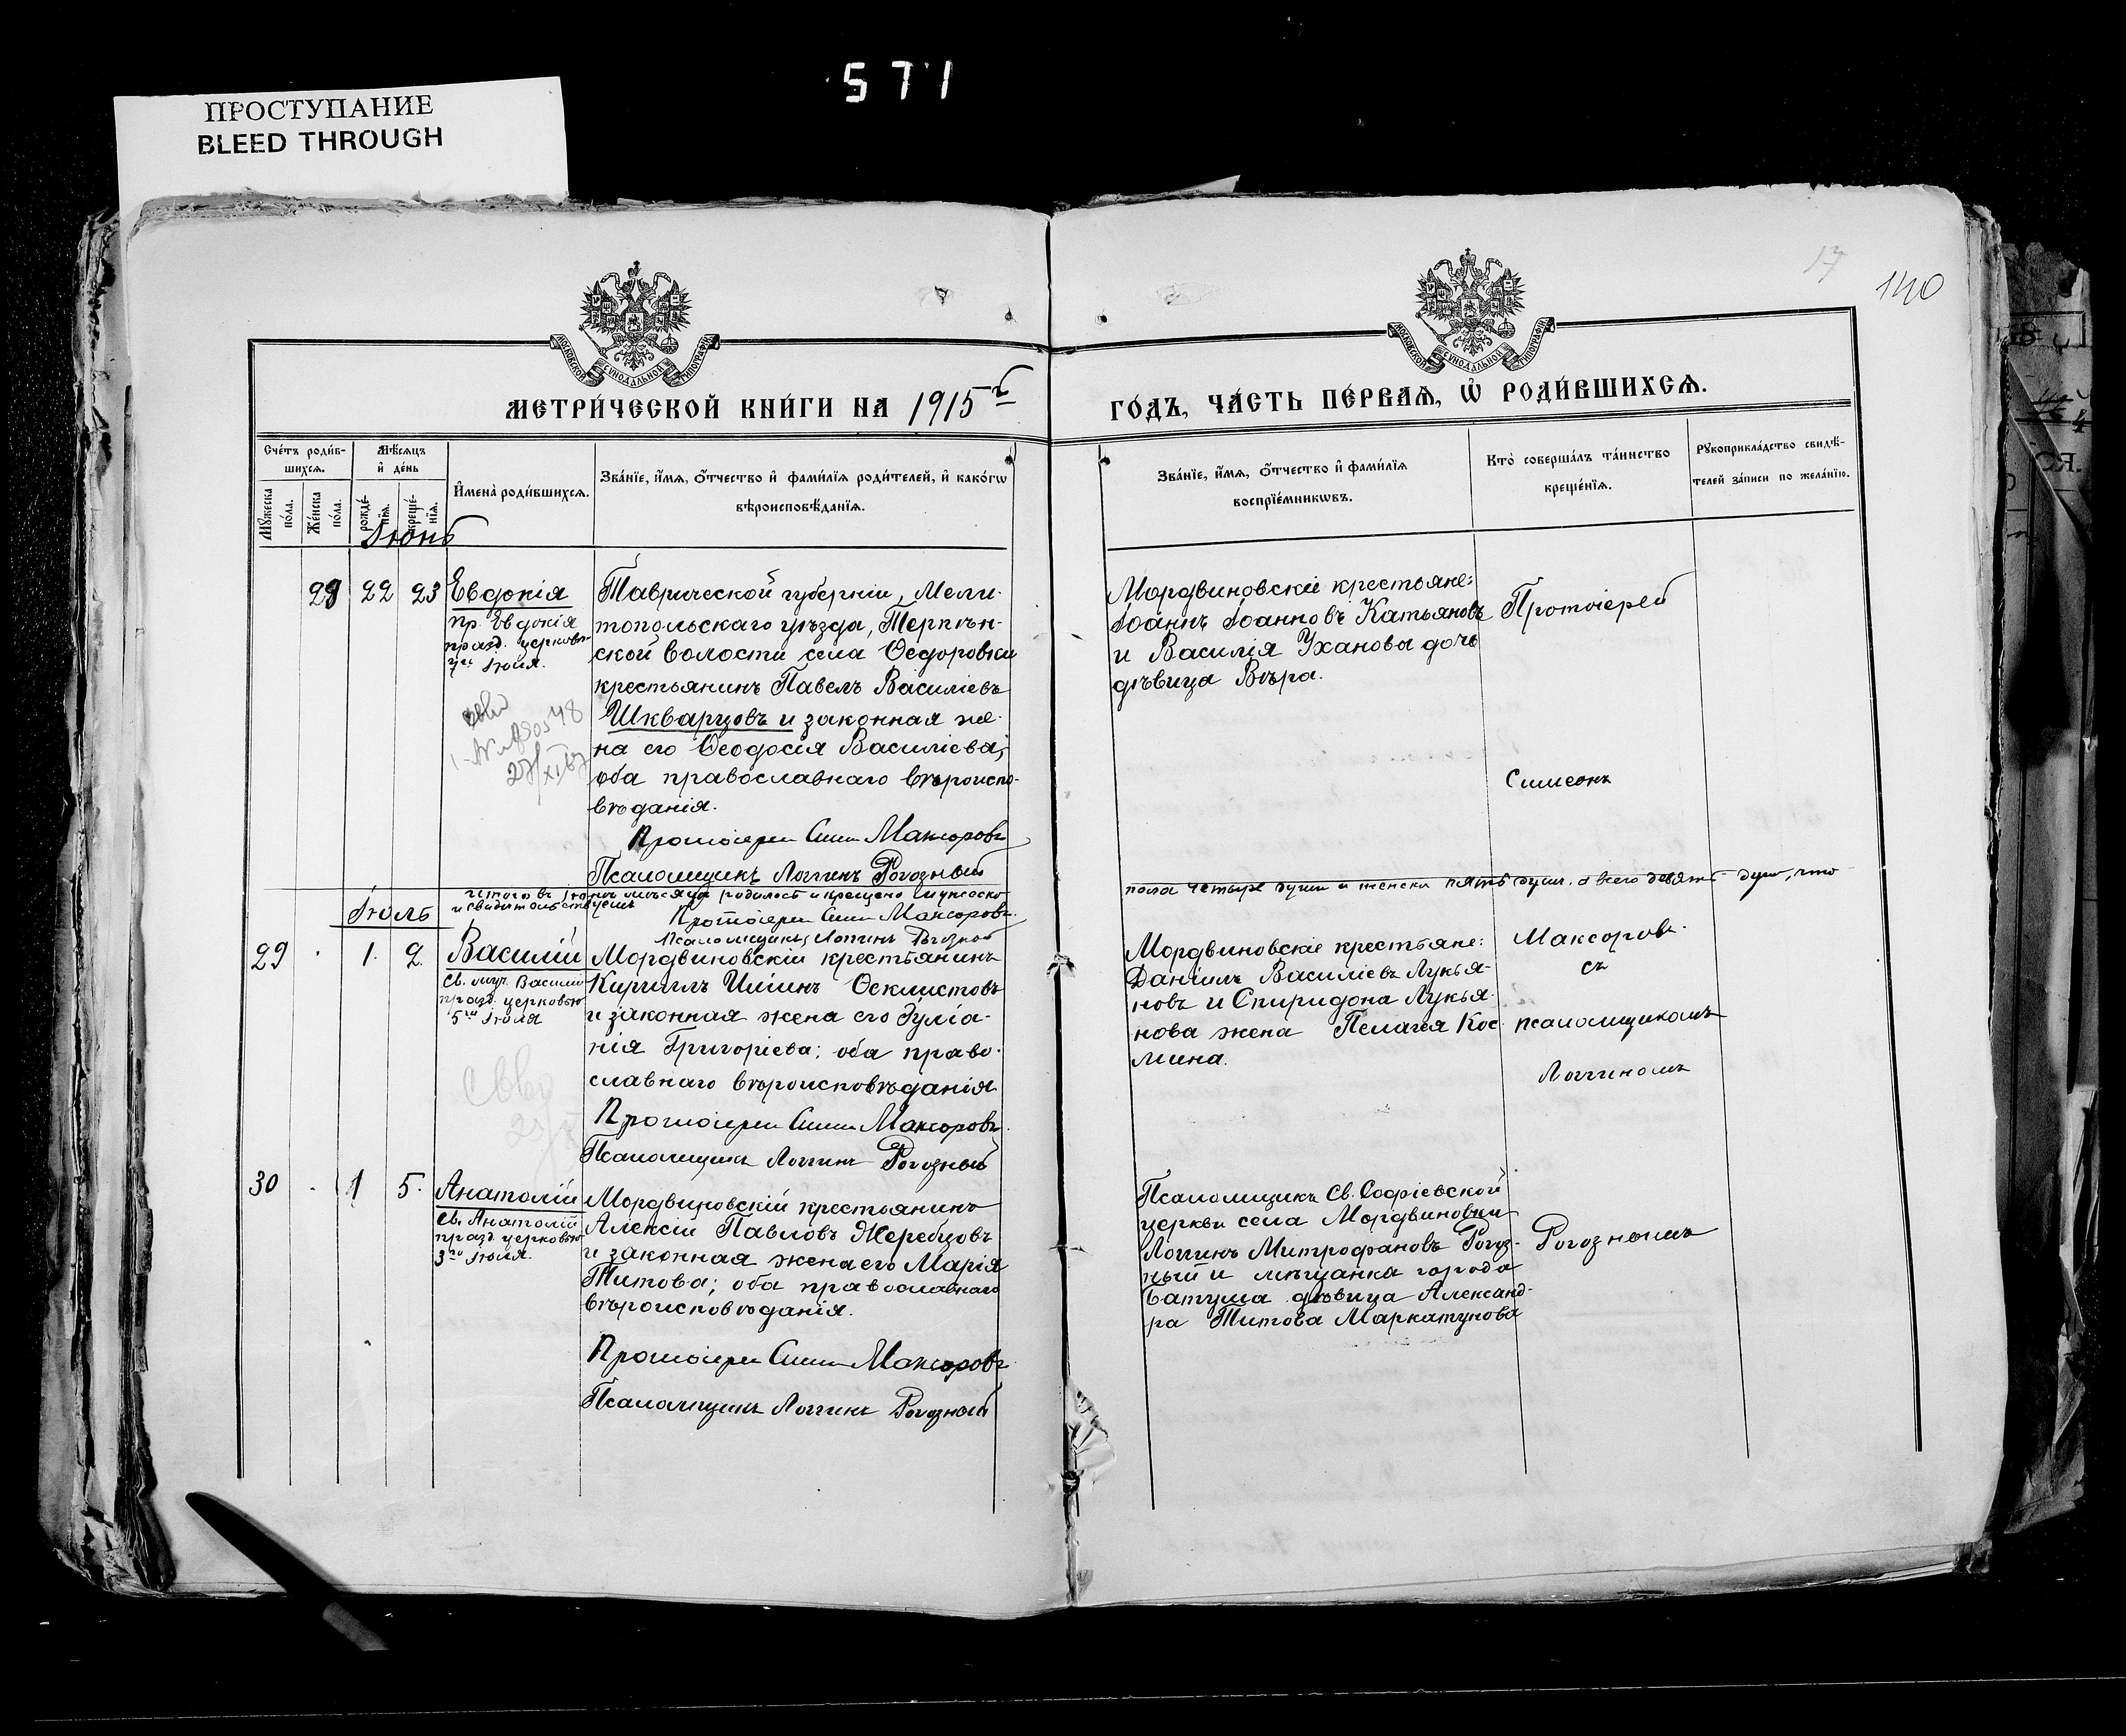 571
ПРОСТУПАНИЕ
BLEED THROUGH
17
140
МОСКОВСКОЙ СѴНОДАЛЬНОЙ ТИПОГРАФІИ
МОСКОВСКОЙ СѴНОДАЛЬНОЙ ТИПОГРАФІИ
МЕТРИ́ЧЕСКОЙ КНИ́ГИ НА 1915 г
ГО́ДЪ, ЧА́СТЬ ПЕ́РВАѦ, Ѡ҆ РОДИ́ВШИХСѦ.
Сче́тъ роди́в-
шихсѧ.
Мѣ́сѧцъ
и҆ де́нь
Мꙋ́жеска по́ла.
Же́нска по́ла.
рожде́-
нїѧ.
креще́-
нїѧ.
И҆мена̀ роди́вшихсѧ.
Зва́нїе, и҆́мѧ, ѻ҆́тчество и҆ фами́лїѧ роди́телей, и҆ како́гѡ
вѣроисповѣ́данїѧ.
Зва́нїе, и҆́мѧ, ѻ҆́тчество и҆ фами́лїѧ
воспрїе́мникѡвъ.
Кто̀ соверша́лъ та́инство
креще́нїѧ.
Рꙋкоприкла́дство свидѣ́-
телей за́писи по жела́нїю.
Іюнь
29 22 23 Евдокія
пр. Евдокія
празд. церковью
7го Іюля.
Таврической губерніи, Мели-
топольскаго уѣзда, Терпѣн-
ской волости села Ѳедоровки
крестьянинъ Павелъ Василіевъ
Шкварцовъ и законная же-
на его Ѳеодосія Василіева;
оба православнаго вѣроиспо-
вѣданія.
Протоіерей Сим Максоровъ
Псаломщикъ Логгинъ Рогозный
Мордвиновскіе крестьяне:
Іоаннъ Іоанновъ Катьяновъ
и Василія Уханова дочь
дѣвица Вѣра.
Протоіерей
Симеонъ
Итого въ Іюнѣ мѣсяцѣ родилось и крещено мужеска
пола четыре души и женска пять душъ, а всего девять душъ, что
и свидѣтельствуемъ
Протоіерей Сим Максоровъ.
Псаломщикъ Логгинъ Рогозный
Іюль
29 1. 2. Василій
Св. муч. Василій
празд. церковью
5го Іюля
Мордвиновскій крестьянинъ
Кириллъ Илiинъ Ѳеклистовъ
и законная жена его Іуліа-
нія Григоріева; оба право-
славнаго вѣроисповѣданія
Протоіерей Сим Максоровъ.
Псаломщикъ Логгинъ Рогозный
Мордвиновскіе крестьяне:
Даніилъ Василіевъ Лукья-
новъ и Спиридона Лукья-
нова жена Пелагея Кос-
мина.
Максоровъ.
съ
псаломщикомъ
Логгиномъ
30 1 5. Анатолій
Св. Анатолій
празд. церковью
3го Іюля.
Мордвиновскій крестьянинъ
Алексій Павловъ Жеребцовъ
и законная жена его Марія
Титова; оба православнаго
вѣроисповѣданія.
Протоіерей Сим Максоровъ
Псаломщикъ Логгинъ Рогозный
Псаломщикъ Св. Софіевской
церкви села Мордвиновки
Логгинъ Митрофановъ Рогоз-
ный и мѣщанка города
Батума дѣвица Александ-
ра Титова Маркатунова
Рогознымъ